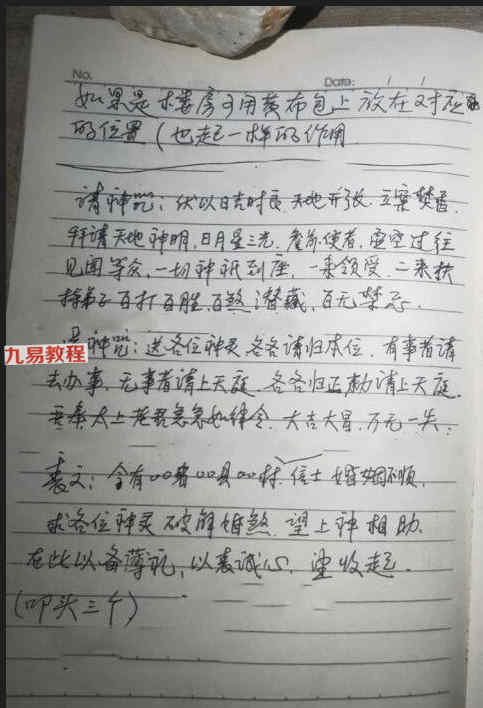 No.
Date: / /
如果是木楼房可用黄布包上放在对应
的位置(也起一样的作用
请神咒：伏以日吉时良.天地开张.立案焚香.
拜请天地神明,日月星三光.虚空过往
见闻等众,一切神祇到座.一来领受.二来扶
持弟子百打百胜.百煞潜藏,百无禁忌.
神咒：送各位神灵.各各请归本位.有事者请
九易教程
去办事.无事者请上天庭.各各归正请上天庭.
奉太上老君急急如律令.大吉大昌.万无一失;
表文：今有○○省○○县○○村.信士婚姻不顺.
求各位神灵破解婚煞.望上神相助.
在此以备薄礼,以表诚心.望收起.
(叩头三个)